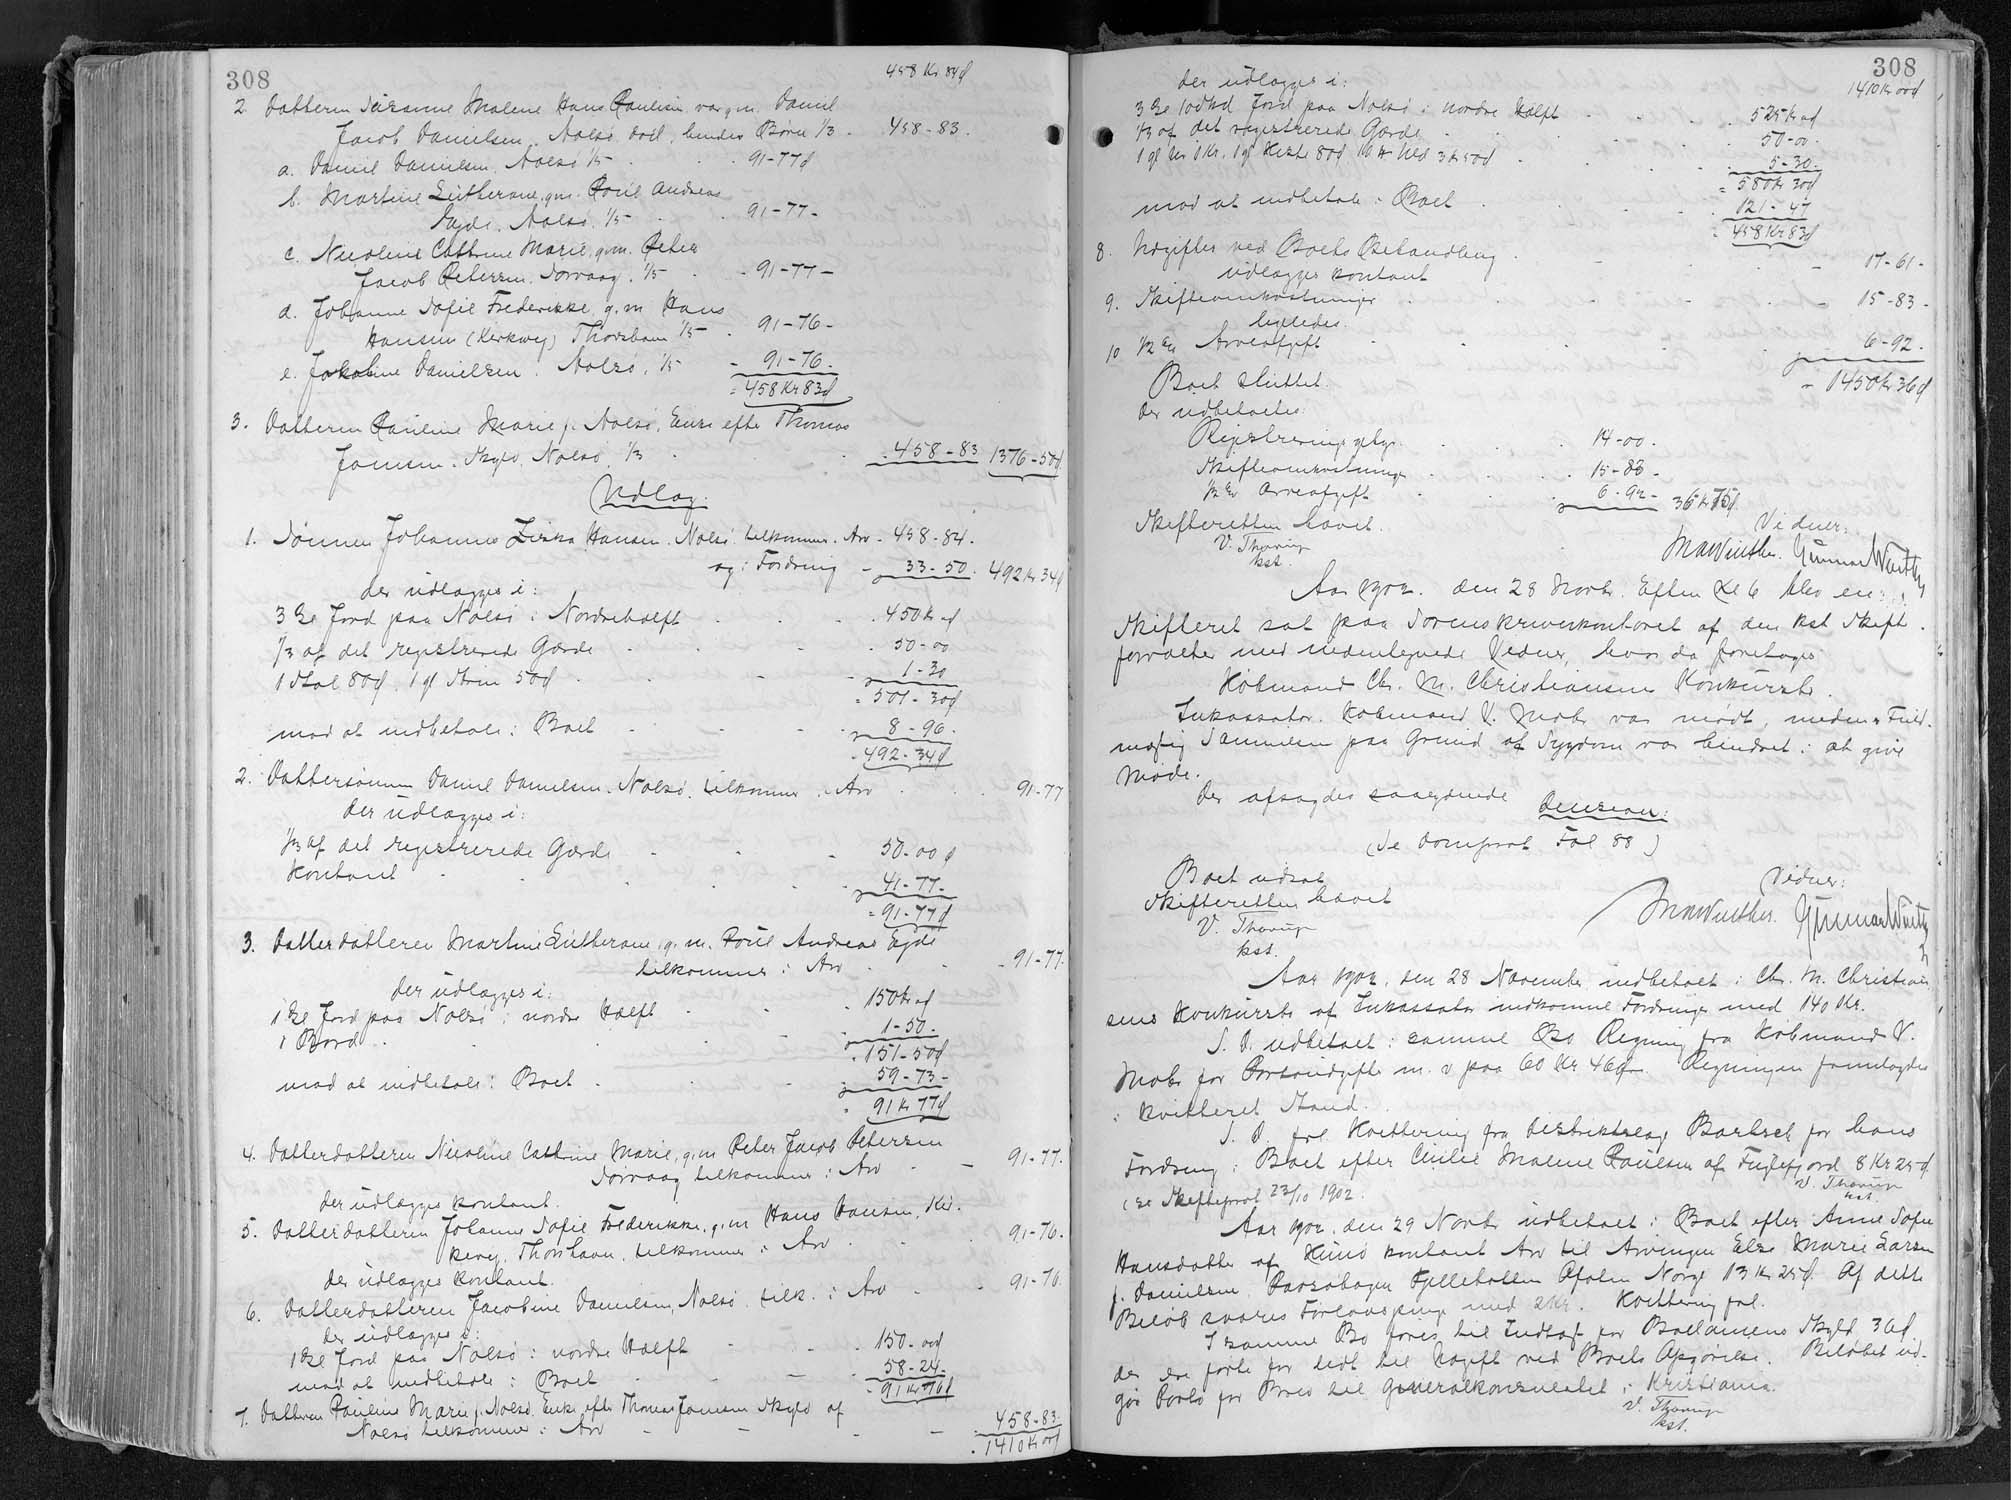 308
458 Kr 84 d
2. Datteren Susanne Malene Hans Paulina var gm. Daniel
Jacob Danielsen, Nolsö, död, hendes Börn 1/3 - 458-83.
a. Daniel Danielsen, Nolsö 1/5 - 91-77 d
b. Martine Lutherane, gm. Poul Andreas
Eyde, Nolsö, 1/5 - 91-77-
c. Nicoline Cathrine Marie, g.m. Peter
Jacob Petersen, Sorvaag, 1/5 - 91-77-
d. Johanne Sofie Frederikke, g.m. Hans
Hansen (Kerkvej) Thorshavn 1/5 - 91-76-
e. Jakobine Danielsen, Nolsö, 1/5 - 91-76.
= 458 Kr 83 d
3. Datteren Pauline Marie f. Nolsö, Enke efter Thomas
Joensen, Skylv, Nolsö, 1/3 - 458-83 1376-50 d
Udlæg:
1. Sönnen Johannes Ziska Hansen, Nolsö tilkommer i Arv - 458-84.
og i Fordring - 33-50. 492 Kr 34 d
der udlægges i:
3 Gl Jord paa Nolsö i Nordrehælft - 450 Kr d
1/3 af det registrerede Gærde - 50-00
1 Stol 80 d, 1 gl Skrin 50 d - 1-30
= 501-30 d
mod at indbetale i Boet - 8-96.
= 492-34 d
2. Dattersönnen Daniel Danielsen, Nolsö, tilkommer i Arv - 91-77
der udlægges i:
1/3 af det registrerede Gærde - 50-00 d
Kontant - 41-77-
= 91-77 d
3. Datterdatteren Martine Lutherane, g.m. Poul Andreas Eyde
tilkommer i Arv - 91-77.
der udlægges i:
1 Gl Jord paa Nolsö i nordre Hælft - 150 Kr d
1 Bord - 1-50-
= 151-50 d
mod at indbetale i Boet - 59-73-
= 91 Kr 77 d
4. Datterdatteren Nicoline Cathrine Marie, g.m. Peter Jacob Petersen
Sorvaag tilkommer i Arv - 91-77.
der udlægges kontant.
5. Datterdatteren Johanne Sofie Frederikke, g.m. Hans Hansen, Kir-
kevej, Thorshavn, tilkommer i Arv - 91-76.
der udlægges kontant.
6. Datterdatteren Jacobine Danielsen, Nolsö, tilk. i Arv - 91-76.
der udlægges i:
1 Gl Jord paa Nolsö i nordre Hælft - 150-00 d
mod at indbetale i Boet - 58-24-
= 91 Kr 76 d
7. Datteren Pauline Marie f. Nolsö, Enke efter Thomas Joensen Skylv af
Nolsö tilkommer i Arv - 458-83-
1410 Kr 00 d
308
der udlægges i: 1410 Kr 00 d
3 Gl 10 Skd Jord paa Nolsö i nordre Hælft - 525 Kr d
1/3 af det registrerede Gærde - 50-00-
1 gl Ur 1 Kr, 1 gl Kiste 80 d, 10 Uld 3 Kr 50 d - 5-30.
= 580 Kr 30 d
mod at indbetale i Boet - 121-47
458 Kr 83 d
8. Udgifter ved Boets Behandling - 17-61-
udlægges kontant
9. Skifteomkostninger - 15-83-
ligeledes.
10 1/2 % Arveafgift - 6-92.
= 1450 Kr 36 d
Boet sluttet.
Der udbetaltes:
Registreringsgebyr - 14-00-
Skifteomkostninger - 15-83-
1/2 % Arveafgift - 6-92- 36 Kr 75 d
Skifteretten hævet. Vidner:
V. Thorup
kst. MA Winther. Gunnar
Aar 1902, den 28 Novbr. Efterm Kl 6 blev en
Skifteret sat paa Sorenskriverkontoret af den kst Skift-
forvalter med undertegnede Vidner, hvor da foretoges
Köbmand Chr. M. Christiansens Konkursbo.
Inkassator Köbmand V. Mohr var mödt, medens Fuld-
mægtig Samuelsen paa Grund af Sygdom var hindret i at give
Möde.
Der afsagdes saalydende Decision:
(Se Domprot Fol 88)
Boet udsat
Skifteretten hævet Vidner:
V. Thorup
kst. MA Winther. Gunnar
Aar 1902, den 28 November indbetalt i Chr. M. Christian-
sens Konkursbo af Inkassator indkomne Fordringer med 140 Kr.
S. D. udbetalt i samme Bo Regning fra Köbmand V.
Mohr for Portoudgifter m. v paa 60 Kr 46 d. Regningen fremlagdes
i kvitteret Stand.
S. D. frl. Kvittering fra Distriktslæge Bartsch for hans
Fordring i Boet efter Cicilie Malene Poulsen af Fuglefjord 8 Kr 25 d
(se Skifteprot 22/10 1902. V. Thorup
kst.
Aar 1902, den 29 Novbr udbetalt i Boet efter Anne Sofie
Hansdatter af Kunö kontant Arv til Arvingen Else Marie Larsen
f. Danielsen, Norge 13 Kr 25 d. Af dette
Belöb svares med 2 Kr. Kvittering frl.
I samme Bo föres til Indtægt for Skyld 36 d.
der er fört for lidt til Udgift ved Boets Afgörelse. Belöbet ud-
gör Porto for Brev til Generalkonsulatet i Kristiania.
V. Thorup
kst.